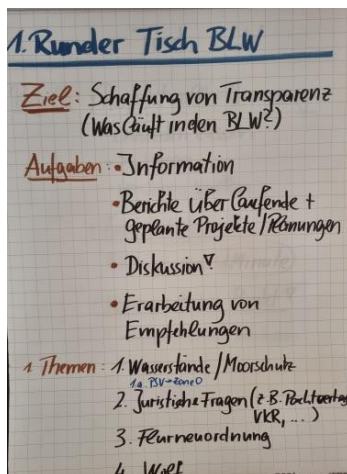 1. Runder Tisch BLW
Ziel: Schaffung von Transparenz
(Was läuft in den BLW?)
Aufgaben: • Information
• Berichte über laufende +
geplante Projekte/Planungen
• Diskussion!
• Erarbeitung von
Empfehlungen
1 Themen: 1. Wasserstände/Moorschutz
1.a. PSV → Zone 0
2. Juristische Fragen (z.B. Pachtvertrag
VKR, ...)
3. Flurneuordnung
4. Wolf